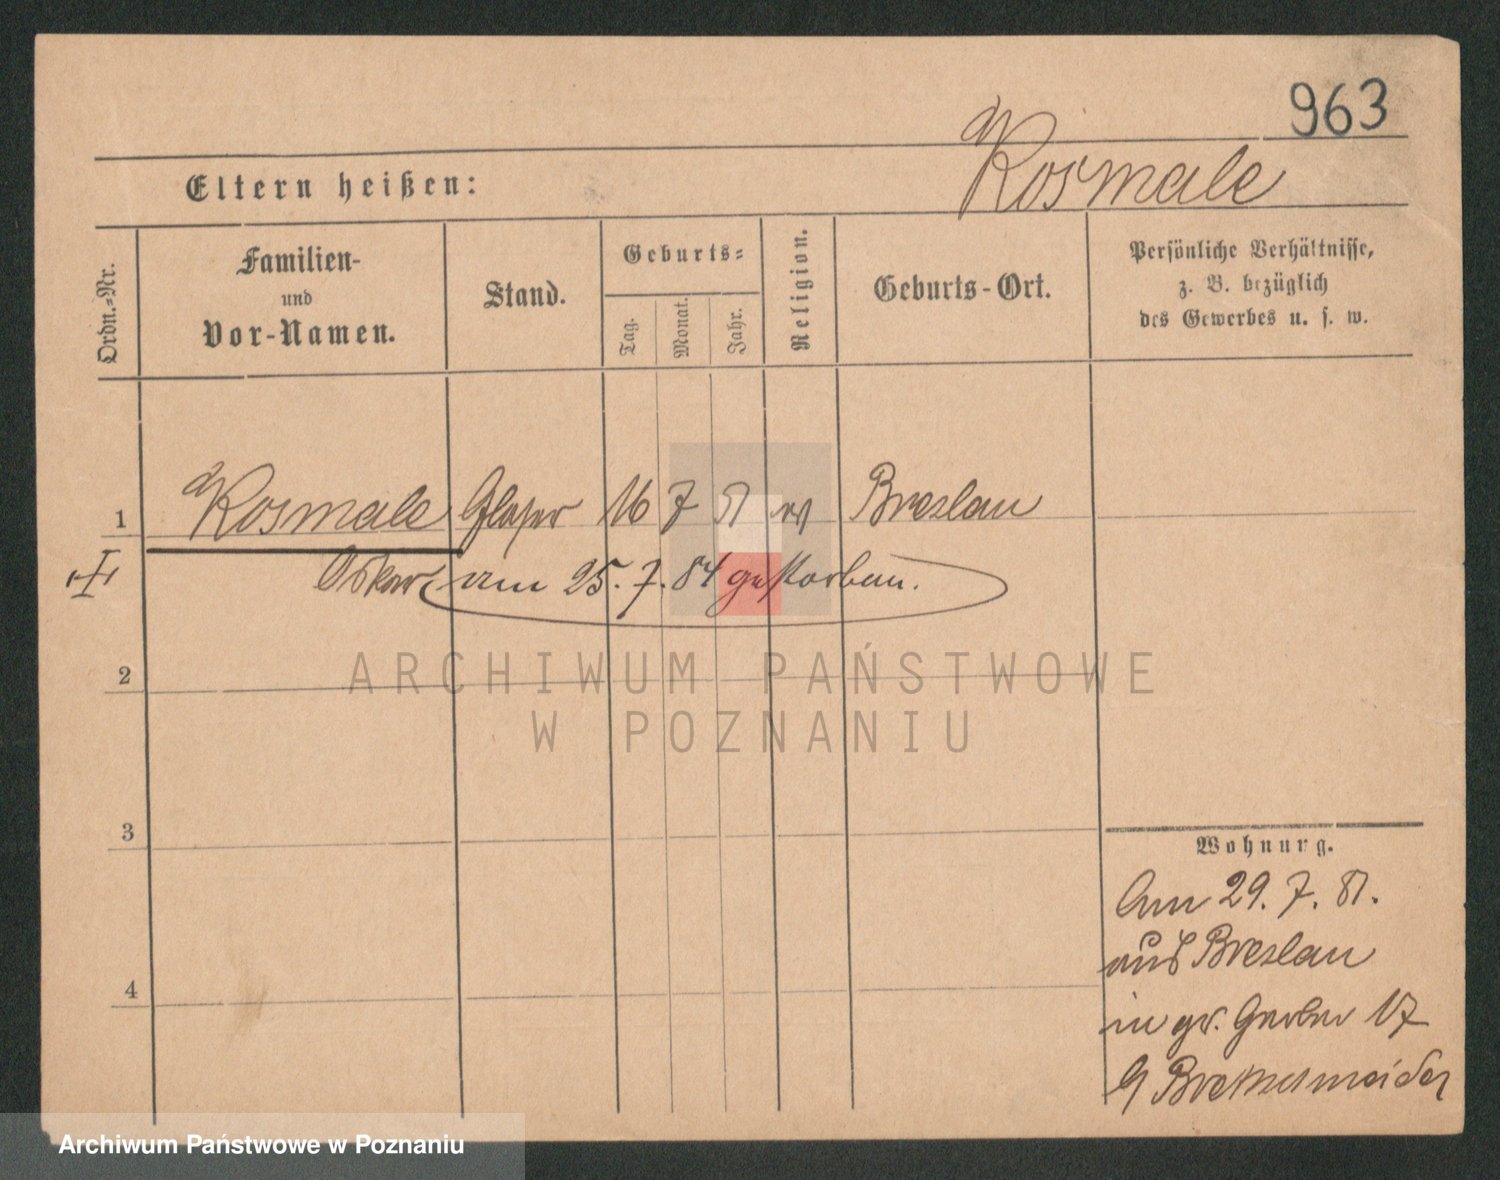 963
Eltern heißen:
Kosmale
Ordn.-Nr.
Familien-
und
Vor-Namen.
Stand.
Geburts-
Tag.
Monat.
Jahr.
Religion.
Geburts-Ort.
Persönliche Verhältnisse,
z. B. bezüglich
des Gewerbes u. s. w.
1 Kosmale Glaser 16 7 51 ev Breslau
Oskar am 25. 7. 84 gestorben.
2
3
4
Wohnung.
Am 29. 7. 81.
aus Breslau
in gr. Gerber 17
Bretschneider
ARCHIWUM PAŃSTWOWE
W POZNANIU
Archiwum Państwowe w Poznaniu